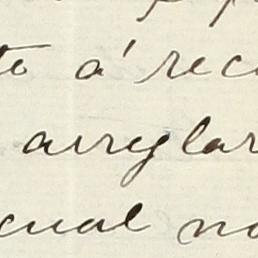 to á rec
arreglar
cual no